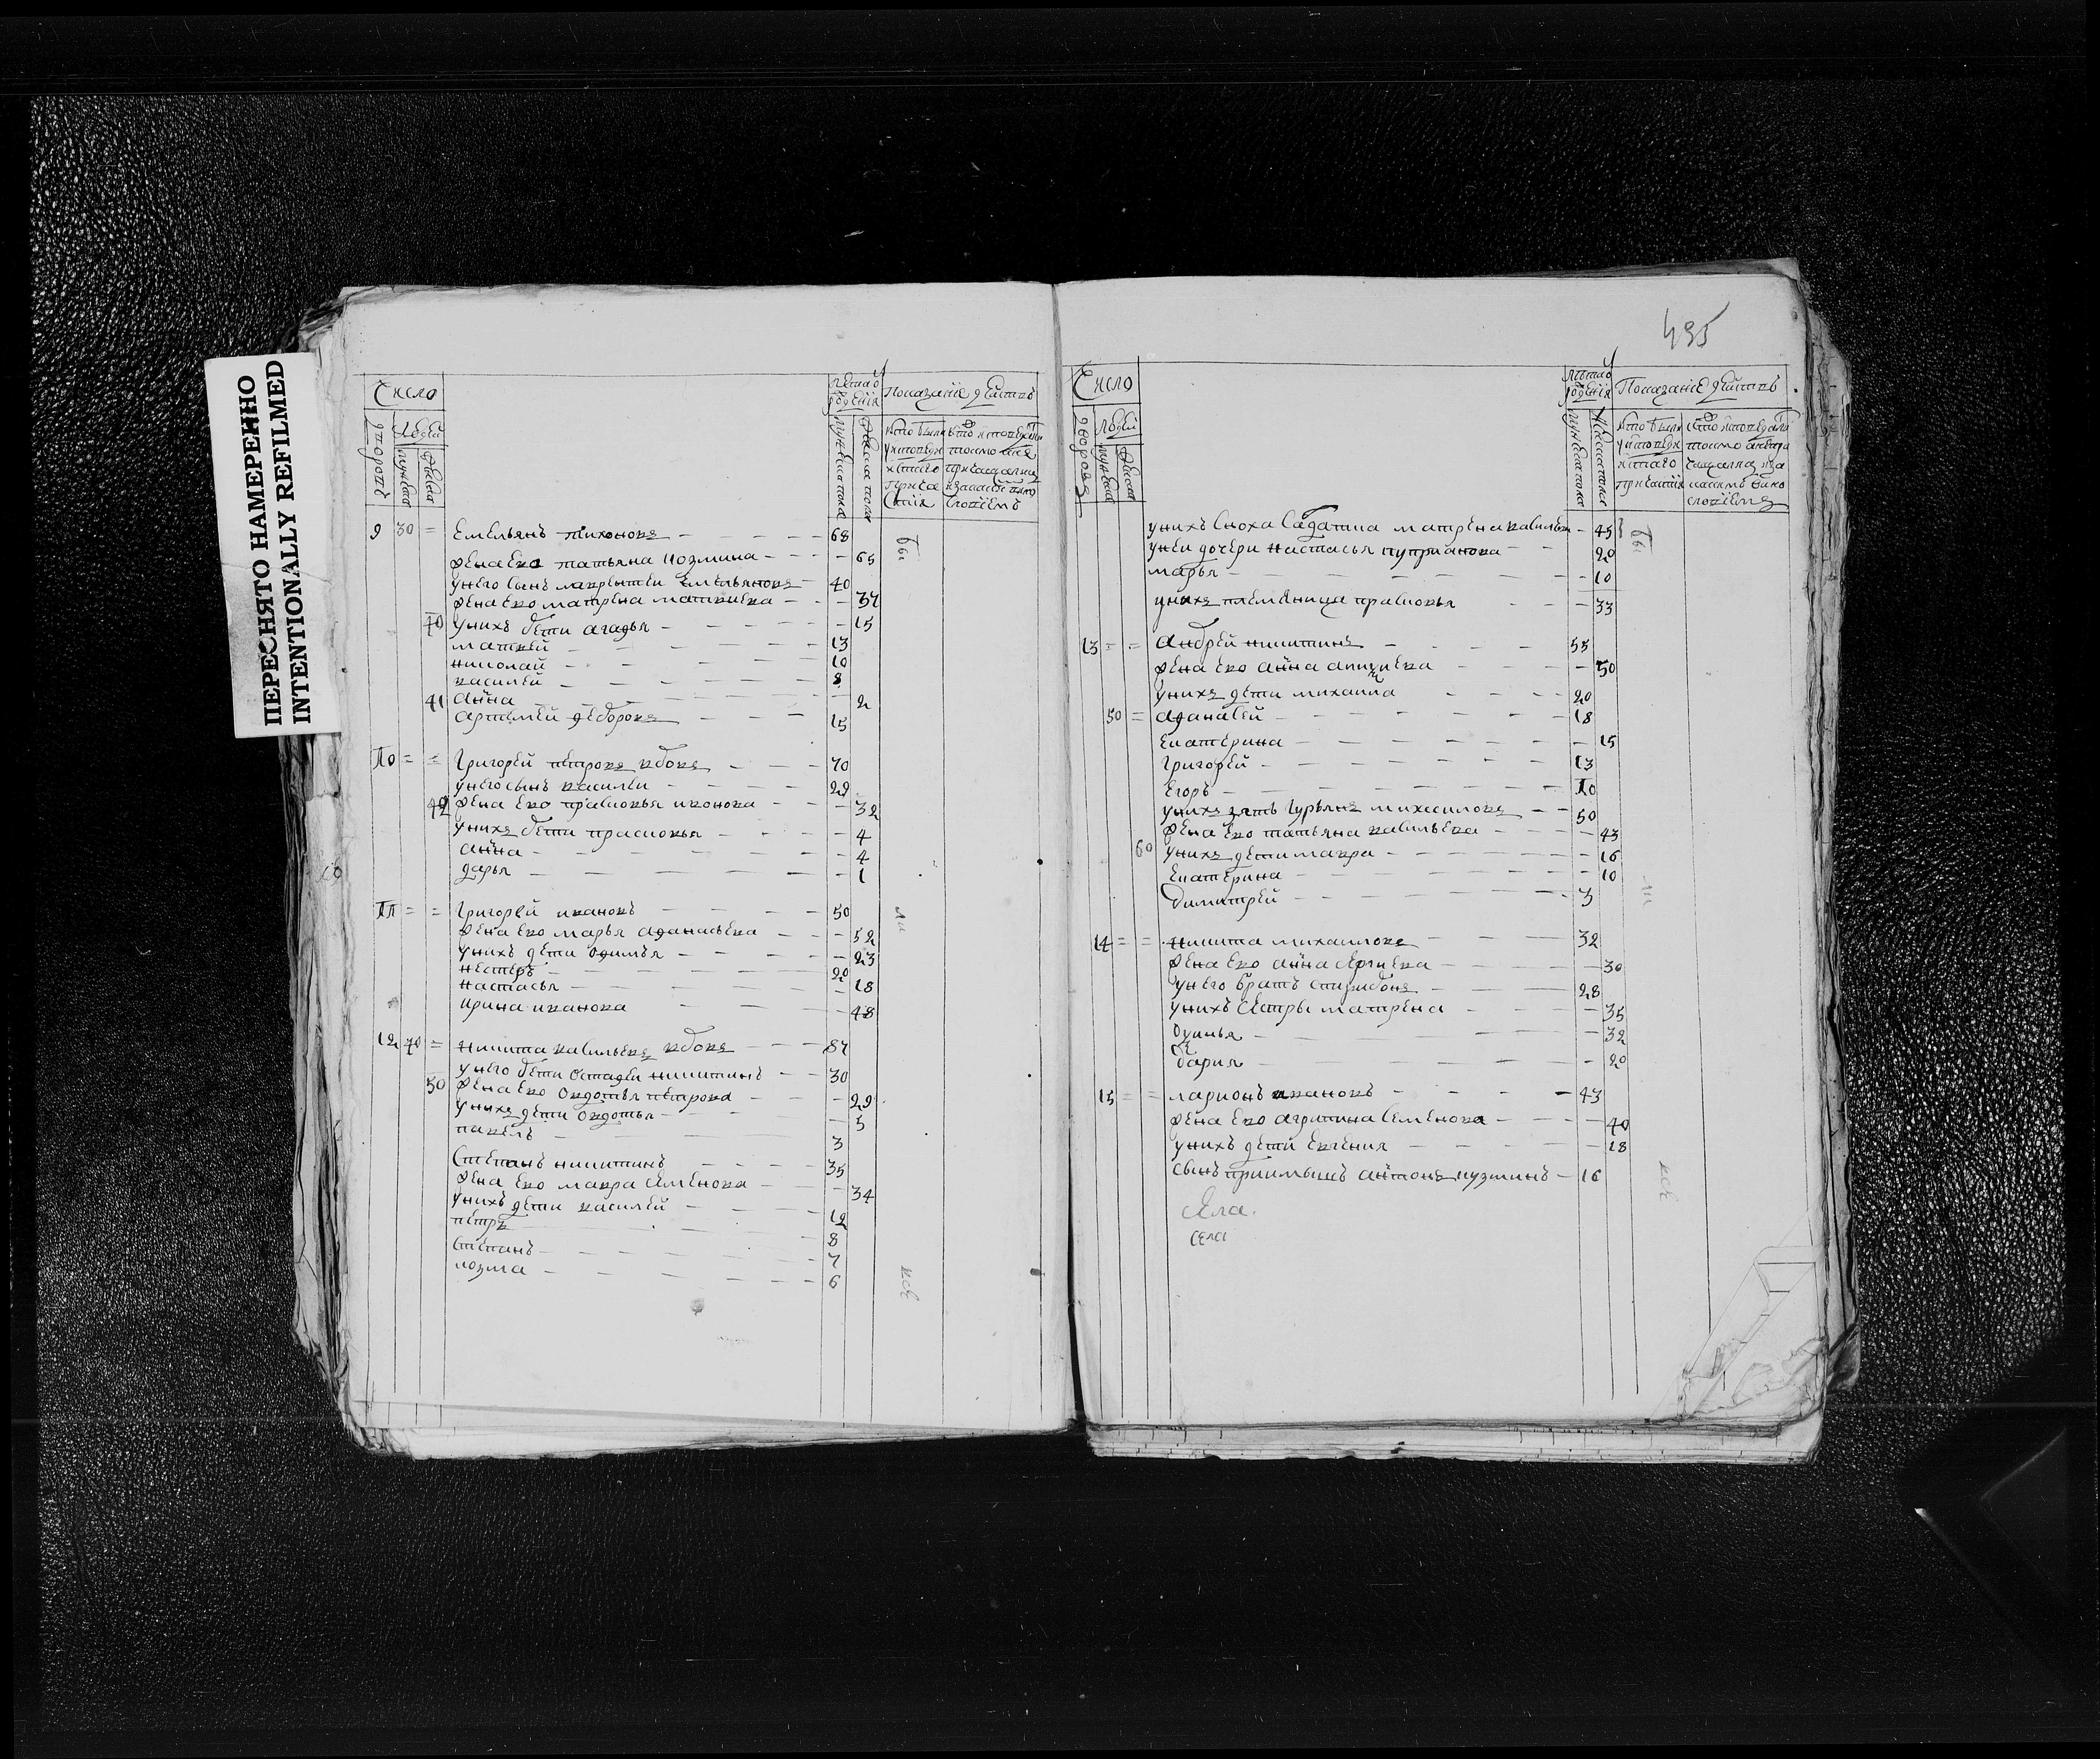 ПЕРЕСНЯТО НАМЕРЕННО
INTENTIONALLY REFILMED
Число
Людей
Показание действъ
9 30 = Емельянъ тихоновъ 68
жена ево татьяна козмина 65
у него сынъ лаврентеи Емельяновъ 40
жена ево матрена матвиева 37
40 у нихъ дети агафья 15
матвей 13
николай 10
василей 8
41 анна 2
артемей федоровъ 15
10 = = Григорей петровъ вдовъ 70
у него сынъ василеи 29
42 жена ево прасковья ивонова 32
у нихъ дети прасковья 4
анна 4
дарья 1
11 = = Григорей ивановъ 50
жена ево марья афанасьева 52
у нихъ дети офимья 23
нестеръ 20
настасья 18
ирина иванова 48
12 40 = никита васильевъ вдовъ 87
у него дети остафеи никитинъ 30
50 жена ево овдотья петрова 29
у нихъ дети овдотья 5
павелъ 3
Степанъ никитинъ 35
жена ево мавра семенова 34
у нихъ дети василей 12
петръ 8
Степанъ 7
козма 6
бы
ли
все
495
Число
Людей
Показание действъ
у нихъ сноха салдатка матрена васильева 45
у неи дочери настасья куприанова 20
марья 10
у нихъ племяница прасковья 33
13 = = андрей никитинъ 55
жена ево анна 50
у нихъ дети михаила 20
50 = афанасей 18
Екатерина 15
Григорей 13
Егоръ 10
у нихъ зять гурьянъ михаиловъ 50
жена ево татьяна васильева 43
60 у нихъ дети мавра 16
Екатерина 10
димитрей 3
14 = = никита михаиловъ 32
жена ево анна сергиева 30
у него братъ спиридонъ 28
у нихъ сестры матрена 35
окулина 32
дария 20
15 = = ларионъ ивановъ 43
жена ево агрипина семенова 40
у нихъ дети евгения 18
сынъ приимышъ антонъ кузминъ 16
села.
села
бы
ли
все